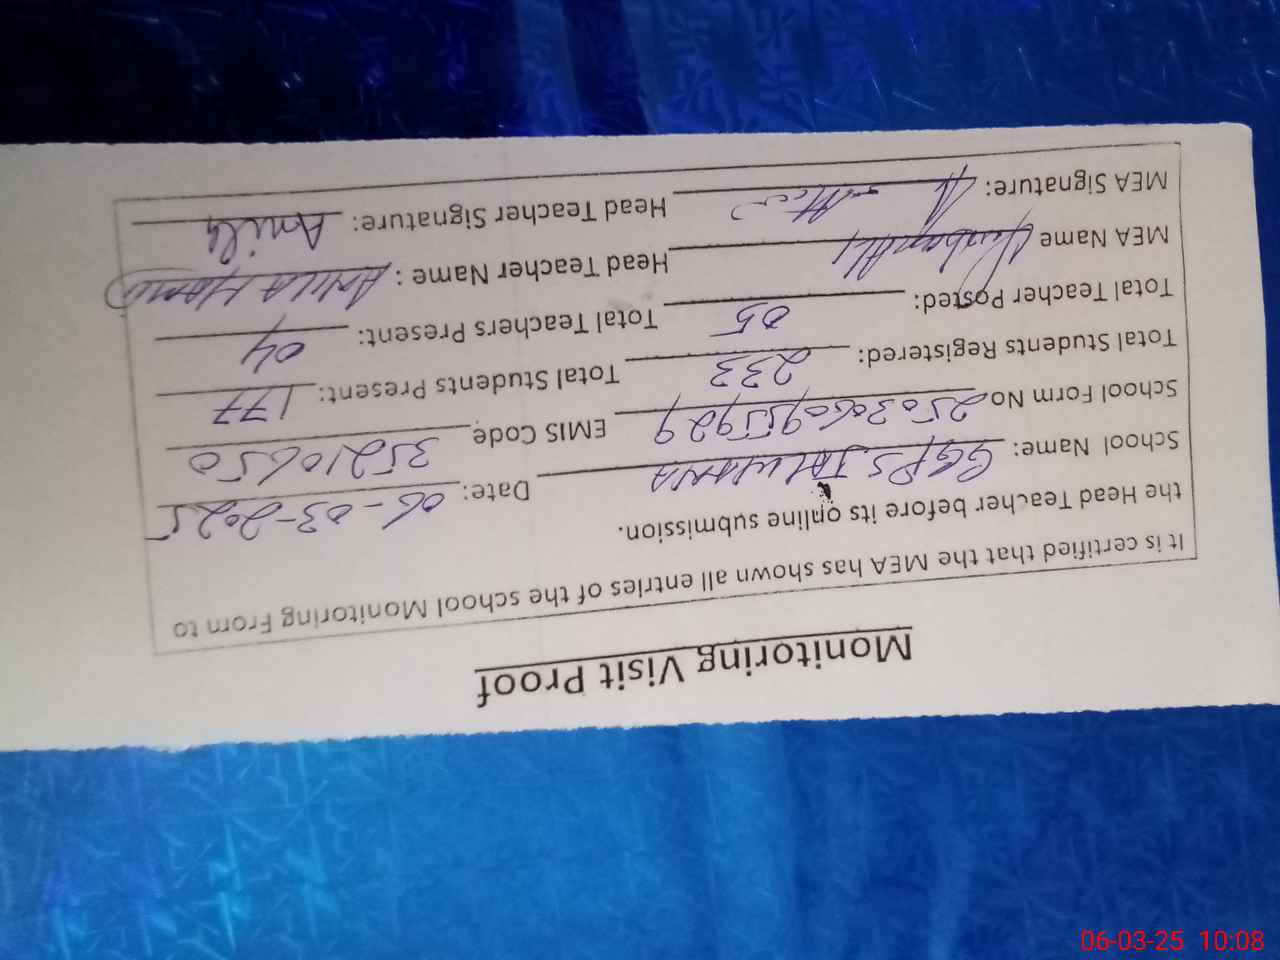 Monitoring Visit Proof
It is certified that the MEA has shown all entries of the school Monitoring From to
the Head Teacher before its online submission.
School Name: GGPS JALWANA Date: 06-03-2025
School Form No 250306095929 EMIS Code 35210650
Total Students Registered: 233 Total Students Present: 177
Total Teacher Posted: 05 Total Teachers Present: 04
MEA Name Head Teacher Name: Anila
MEA Signature: Head Teacher Signature: Anila
06-03-25 10:08